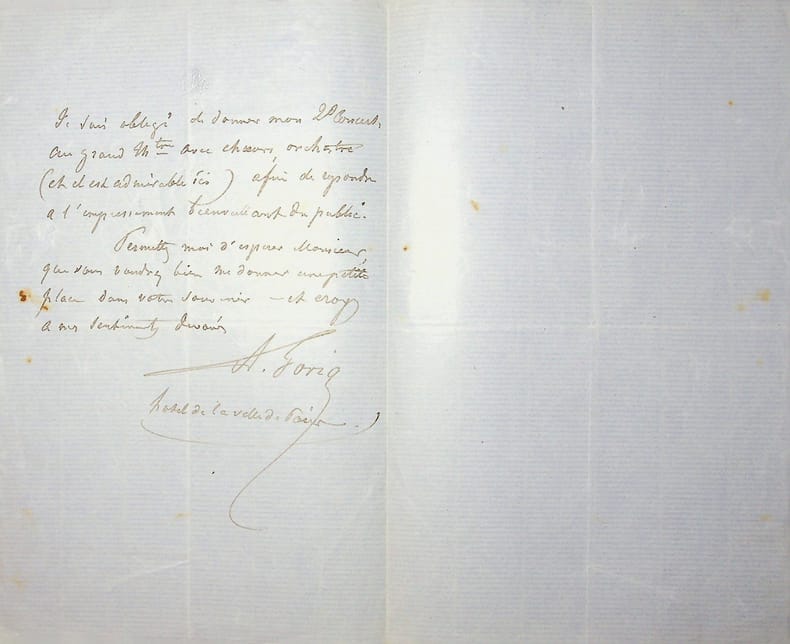 Je suis obligé de donner mon 2d Concert
au grand thtre avec chœurs, orchestre
(et il est admirable ici) afin de repondre
a l'empressement bienveillant du public.
Permettez moi d'esperer Monsieur,
que vous voudrez bien me donner une petite
place dans votre souvenir – et croyez
a mes sentiments devoués
A. Goria
hotel de la ville de Paris